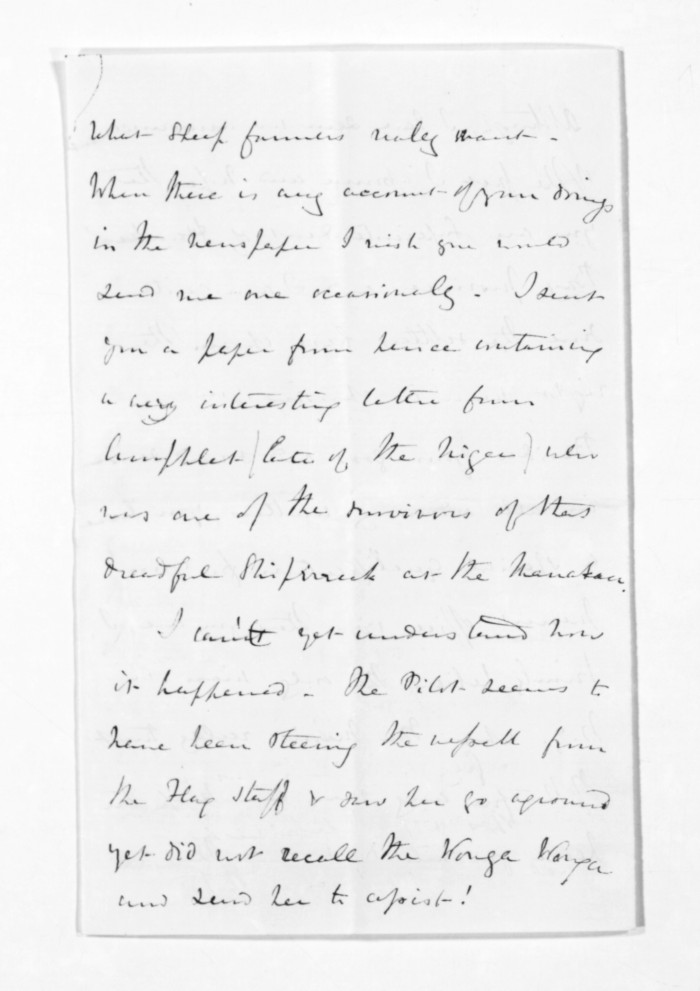 What Sheep farmers really want -
When there is any account of your doings
in the newspaper I wish you would
send me one occasionally - I sent
you a paper from hence containing
a very interesting letter from
(late of the Niger) who
was one of the survivors of that
dreadful Shipwreck at the Manakau.
I can't yet understand how
it happened - The Pilot seems to
have been steering the vessell from
the Flag staff & saw her go aground
yet did not recall the Wonga Wonga
and send her to assist!